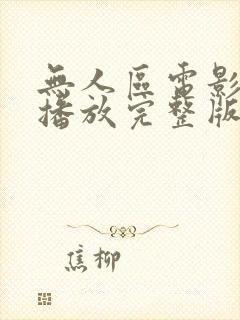 無人區電影
播放完整版
焦柳